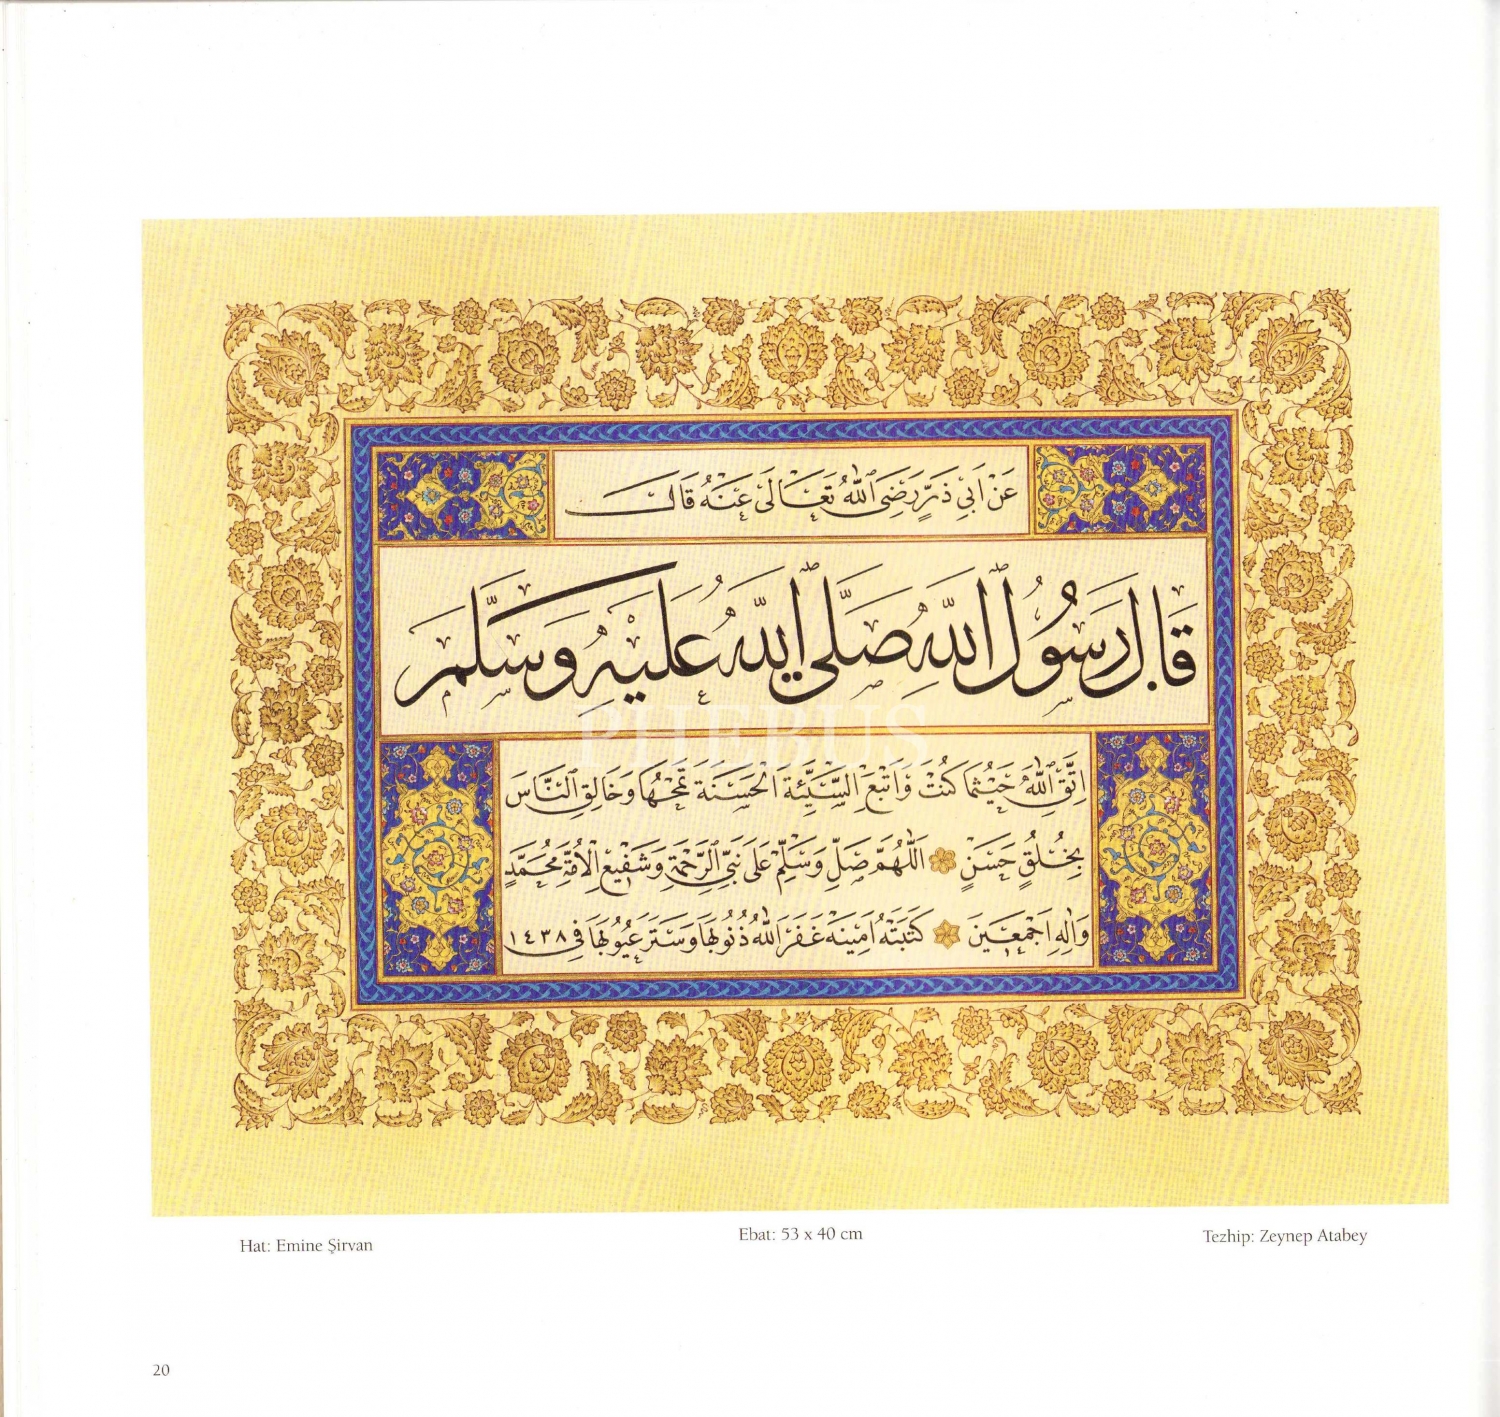 عَنْ اَبِي ذَرٍّ رَضِيَ اللّٰهُ تَعَالَى عَنْهُ قَالَ
قَالَ رَسُولُ اللّٰهِ صَلَّى اللّٰهُ عَلَيْهِ وَسَلَّمَ
اِتَّقِ اللّٰهَ حَيْثُمَا كُنْتَ وَاَتْبِعِ السَّيِّئَةَ الْحَسَنَةَ تَمْحُهَا وَخَالِقِ النَّاسَ
بِخُلُقٍ حَسَنٍ اَللّٰهُمَّ صَلِّ وَسَلِّمْ عَلَى نَبِيِّ الرَّحْمَةِ وَشَفِيعِ الْاُمَّةِ مُحَمَّدٍ
وَاٰلِهِ اَجْمَعِينَ كَتَبَتْهُ اَمِينَه غَفَرَ اللّٰهُ ذُنُوبَهَا وَسَتَرَ عُيُوبَهَا فِي ١٤٣٨
PHEBUS
Hat: Emine Şirvan
Ebat: 53 x 40 cm
Tezhip: Zeynep Atabey
20